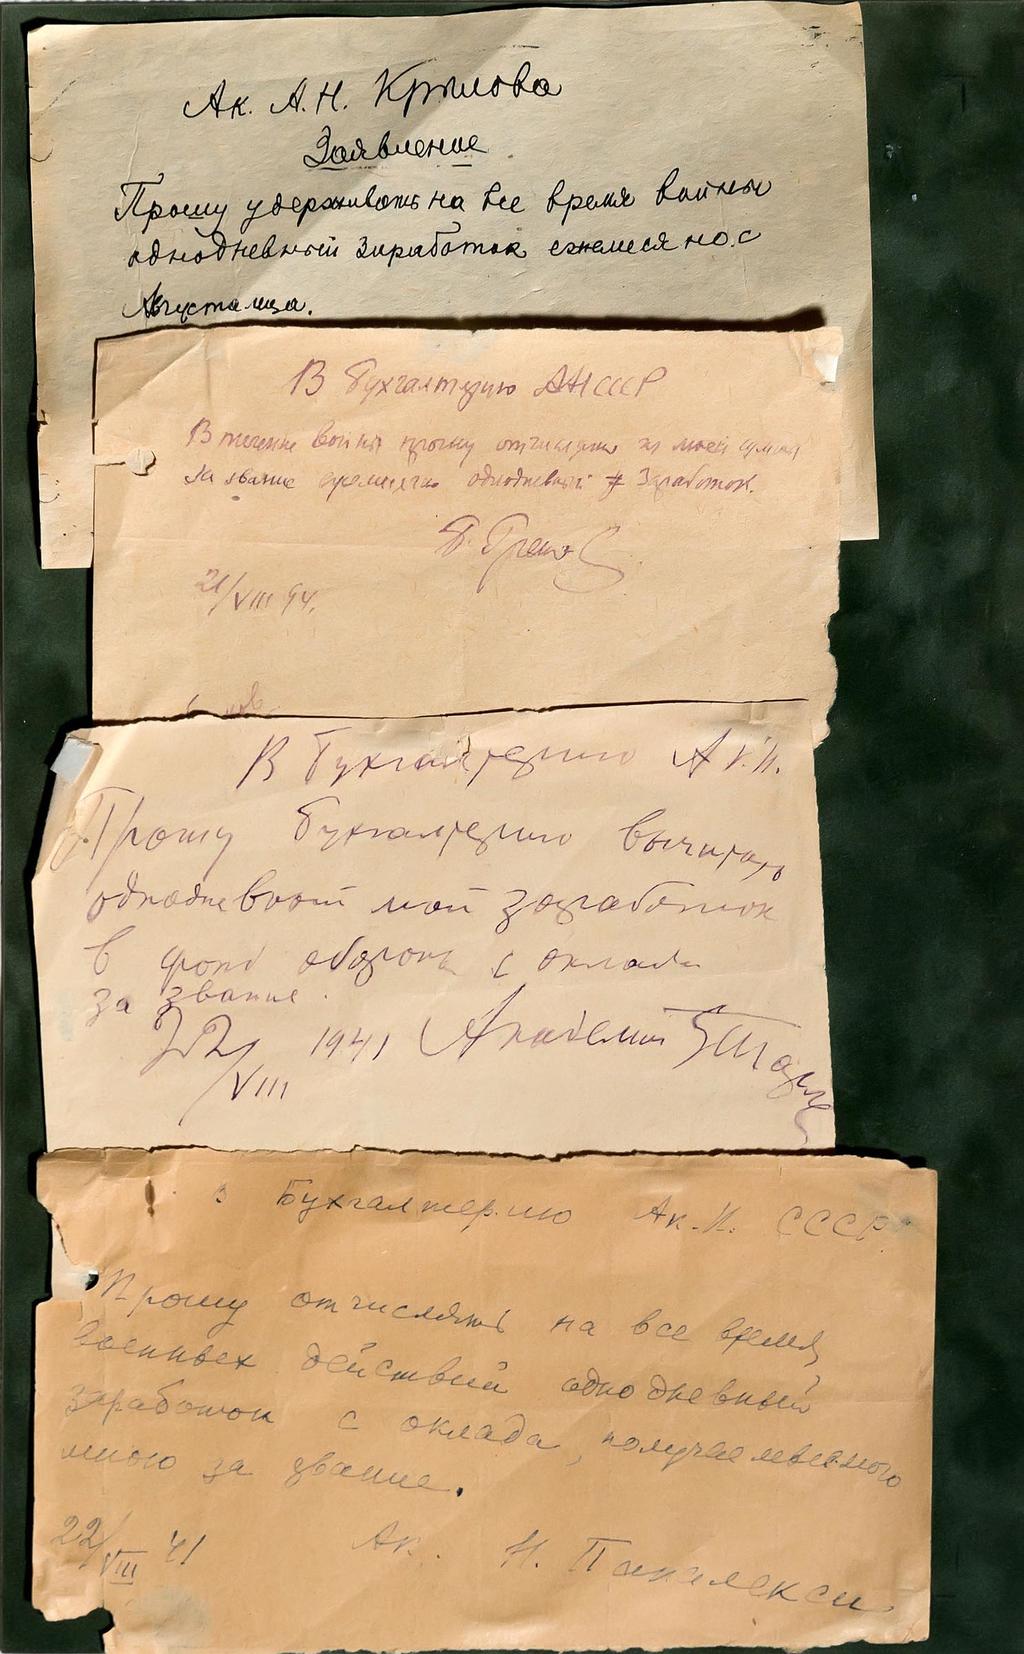 Ак. А.Н. Крылова
Заявление
Прошу удерживать на все время войны
однодневный заработок ежемесячно с
Августа м-ца.
В бухгалтерию АН СССР
В течение войны прошу отчислять из моей
за звание ежемесячно однодневный заработок.
21/VIII
В бухгалтерию Ак. Н.
Прошу бухгалтерию вычитать
однодневный мой заработок
в фонд обороны с оклада
за звание.
22/VIII 1941 Академик
В Бухгалтерию Ак. Н. СССР
Прошу отчислять на все время
военных действий однодневный
заработок с оклада, получаемого
мною за звание.
22/VIII 41 Ак. Н.